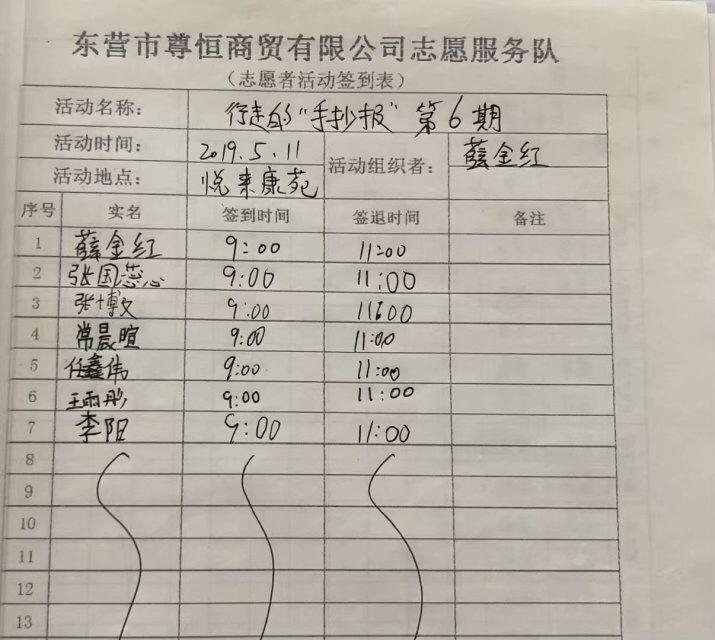 东营市尊恒商贸有限公司志愿服务队
（志愿者活动签到表）
活动名称： 行走的“手抄报”第6期
活动时间： 2019.5.11 活动组织者： 薛金红
活动地点： 悦来康苑
序号 实名 签到时间 签退时间 备注
1 薛金红 9:00 11:00
2 张国蕊 9:00 11:00
3 张博文 9:00 11:00
4 常晨暄 9:00 11:00
5 任鑫伟 9:00 11:00
6 王雨彤 9:00 11:00
7 李阳 9:00 11:00
8
9
10
11
12
13